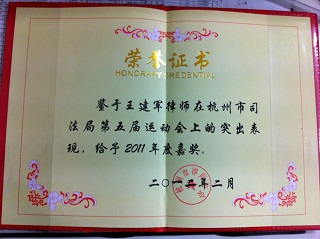 荣誉证书
HONORARY CREDENTIAL
鉴于王建军律师在杭州市司
法局第五届运动会上的突出表
现，给予2011年度嘉奖。
二〇一二年二月